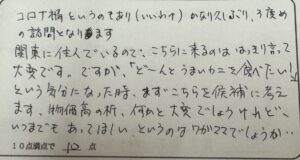 コロナ禍というのもあり(いいわけ)かなり久しぶり、3度め
の訪問となります
関東に住んでいるので、こちらに来るのははっきり言って
大変です。ですが、「ど〜んとうまいカニを食べたい!」
という気分になった時、まずこちらを候補に考え
ます。物価高の折、何かと大変でしょうけれど、
いつまでもあってほしい、というのはワガママでしょうか…
10点満点で 12 点